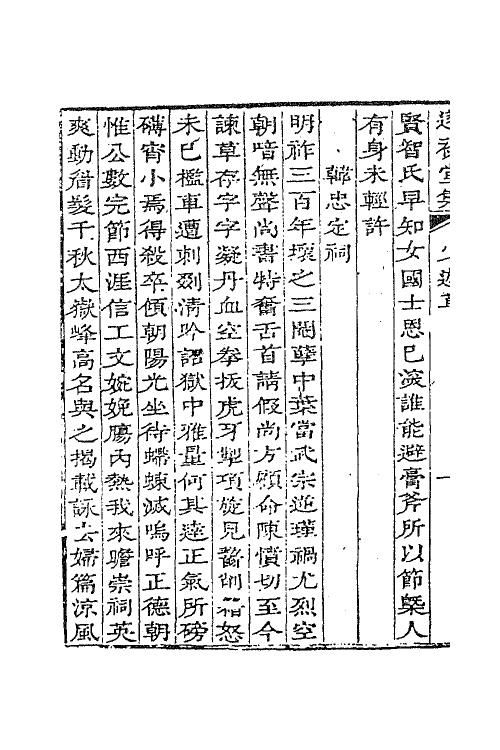 賢智氏早知女國士恩已深誰能避膏斧所以節槩人
有身未輕許
韓忠定祠
明祚三百年壞之三閹孽中葉當武宗逆瑾禍尤烈空
朝喑無聲尚書特奮舌首請假尚方顧命陳憤切至今
諫草存字字凝丹血空拳拔虎牙掣項旋見齧削籍怒
未已檻車遭刺剟清吟詔獄中雅量何其達正氣所磅
礴宵小焉得殺卒傾朝陽光坐待蠕蝀滅嗚呼正德朝
惟公數完節西涯信工文婉娩腸內熱我來瞻崇祠英
爽動僃髮千秋太嶽峰高名與之揭載詠去婦篇涼風